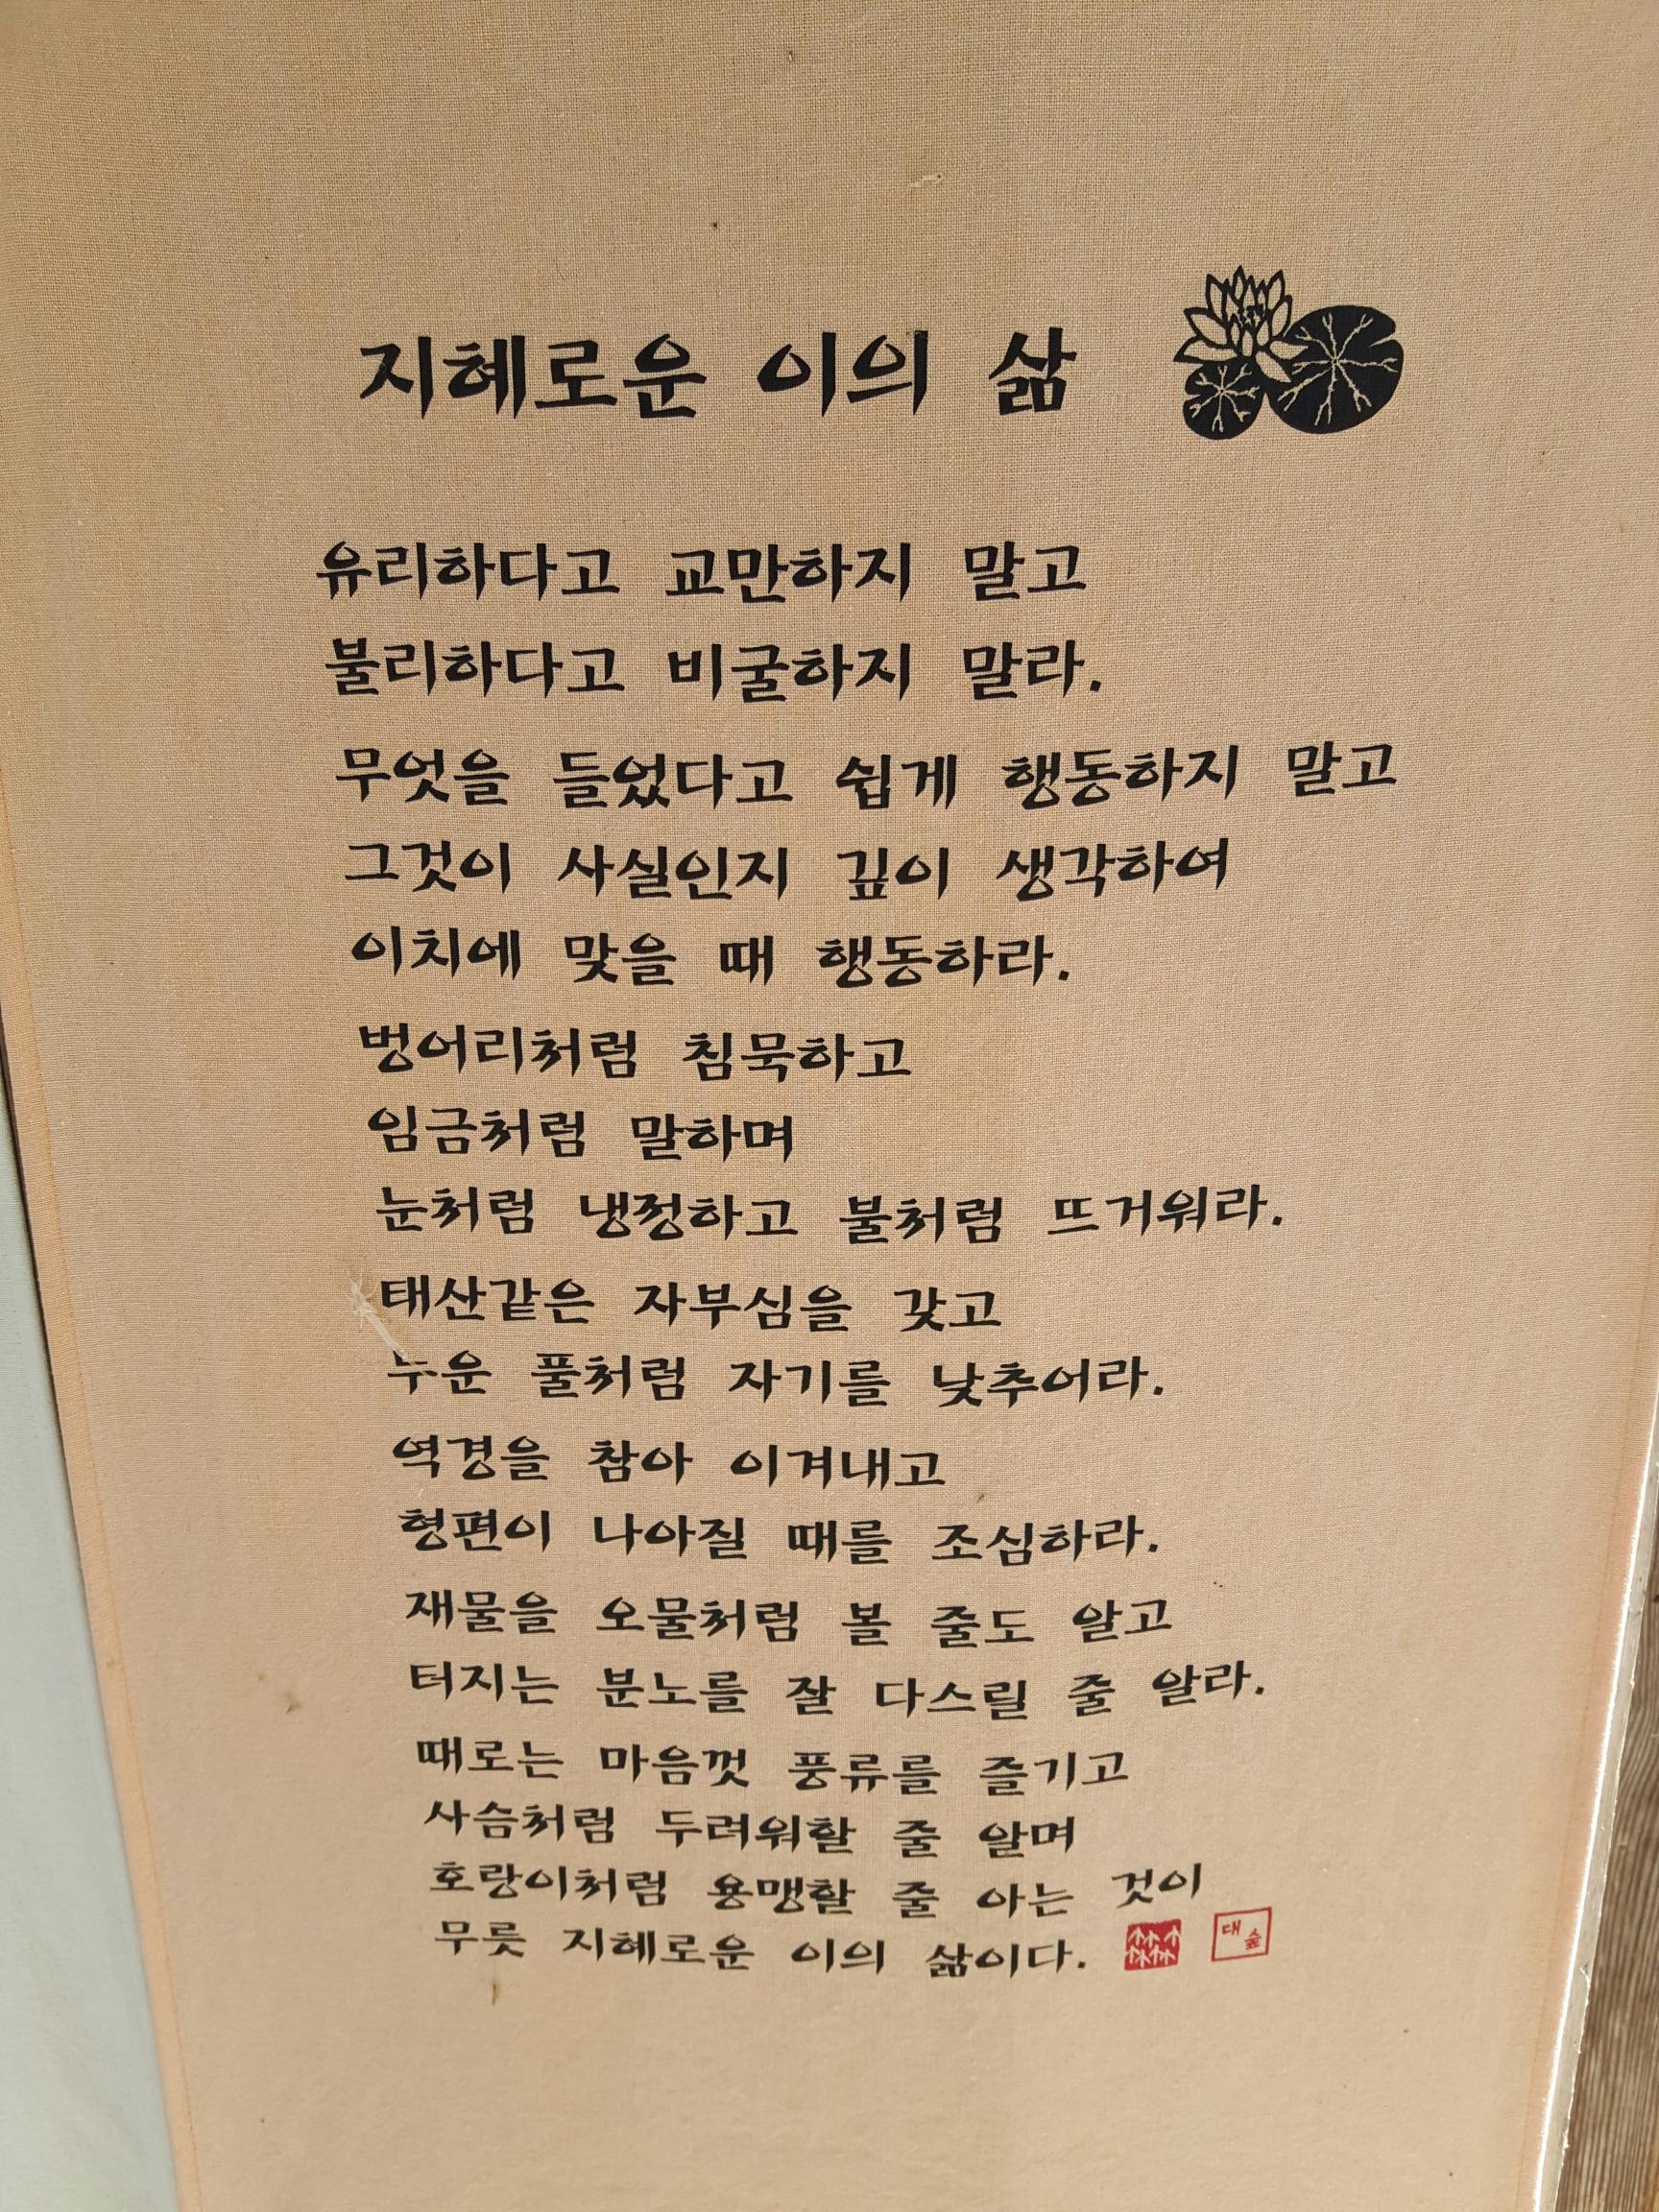 지혜로운 이의 삶
유리하다고 교만하지 말고
불리하다고 비굴하지 말라.
무엇을 들었다고 쉽게 행동하지 말고
그것이 사실인지 깊이 생각하여
이치에 맞을 때 행동하라.
벙어리처럼 침묵하고
임금처럼 말하며
눈처럼 냉정하고 불처럼 뜨거워라.
태산같은 자부심을 갖고
누운 풀처럼 자기를 낮추어라.
역경을 참아 이겨내고
형편이 나아질 때를 조심하라.
재물을 오물처럼 볼 줄도 알고
터지는 분노를 잘 다스릴 줄 알라.
때로는 마음껏 풍류를 즐기고
사슴처럼 두려워할 줄 알며
호랑이처럼 용맹할 줄 아는 것이
무릇 지혜로운 이의 삶이다.
대숲